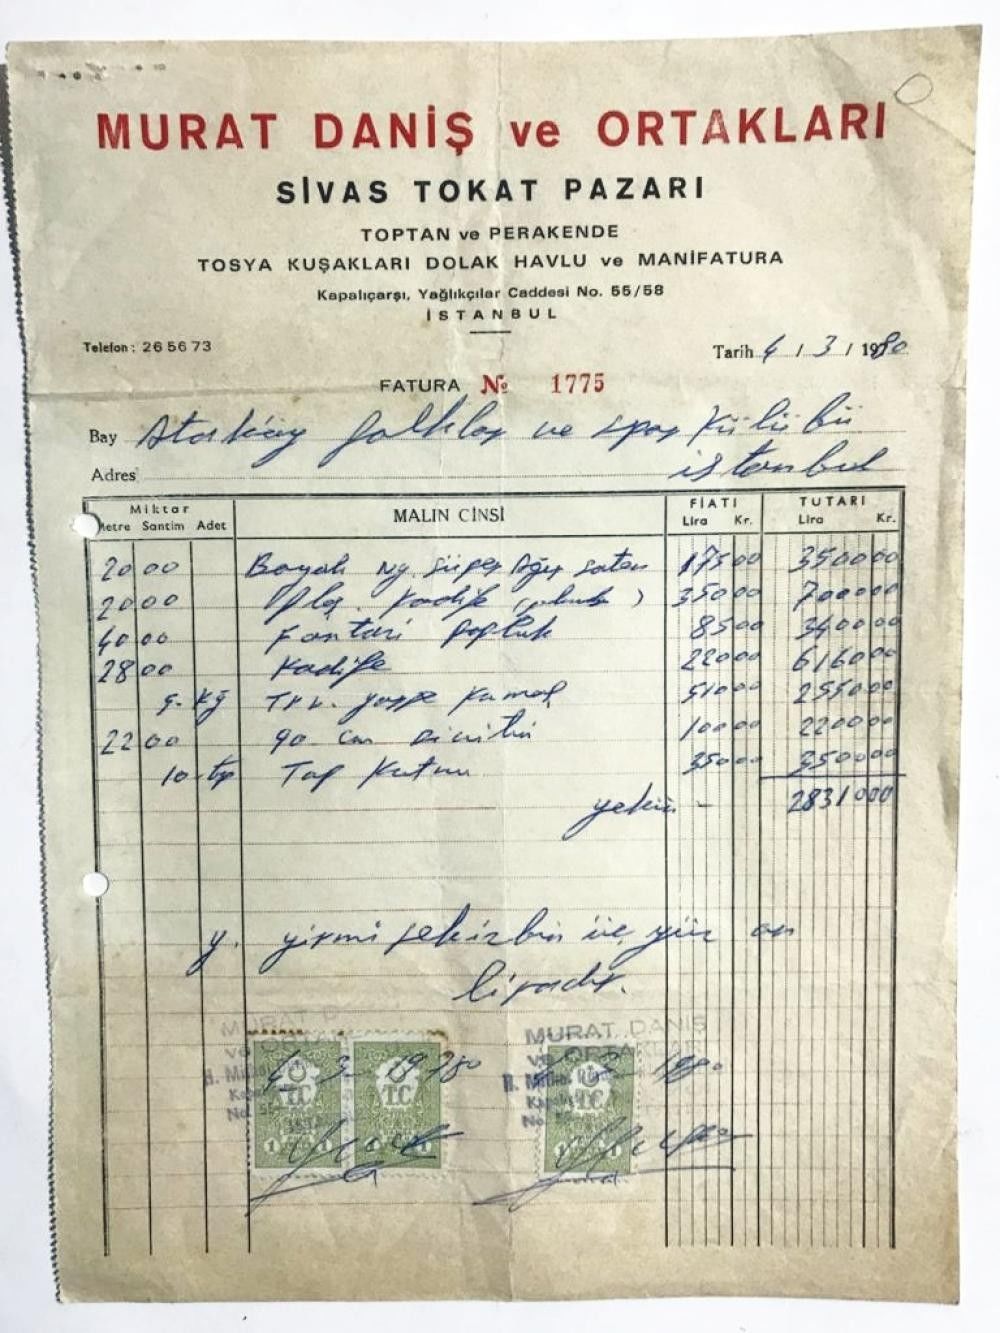 MURAT DANİŞ ve ORTAKLARI
SİVAS TOKAT PAZARI
TOPTAN ve PERAKENDE
TOSYA KUŞAKLARI DOLAK HAVLU ve MANİFATURA
Kapalıçarşı, Yağlıkçılar Caddesi No. 55/58
İSTANBUL
Telefon: 26 56 73
Tarih 4 / 3 / 1980
FATURA № 1775
Bay Ataköy folklor ve spor Külübü
Adres istanbul
Miktar MALIN CİNSİ FİATI TUTARI
Metre Santim Adet Lira Kr. Lira Kr.
20 00 süper saten 175 00 3500 00
20 00 Kadife 350 00 7000 00
40 00 Fantazi poplin 85 00 3400 00
28 00 Kadife 220 00 6160 00
5. kg 510 00 2550 00
22 00 90 cm 100 00 2200 00
10 tp Top 350 00 3500 00
yekün - 28310 00
y. yirmi sekizbin üç yüz on
liradır.
MURAT D
ve ORTAK
4 3 1980
T.C T.C
1 1 1 1
MURAT DANİŞ
ve ORTAKLARI
1980
T.C
1 1